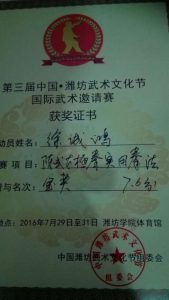 第三届中国·潍坊武术文化节
国际武术邀请赛
获奖证书
动员姓名：徐诚鸿
赛项目：陈式太极拳 拳法
与名次：金奖 7.6分
地点：2016年7月29日至31日 潍坊学院体育馆
中国潍坊武术文化节组委会
组委会